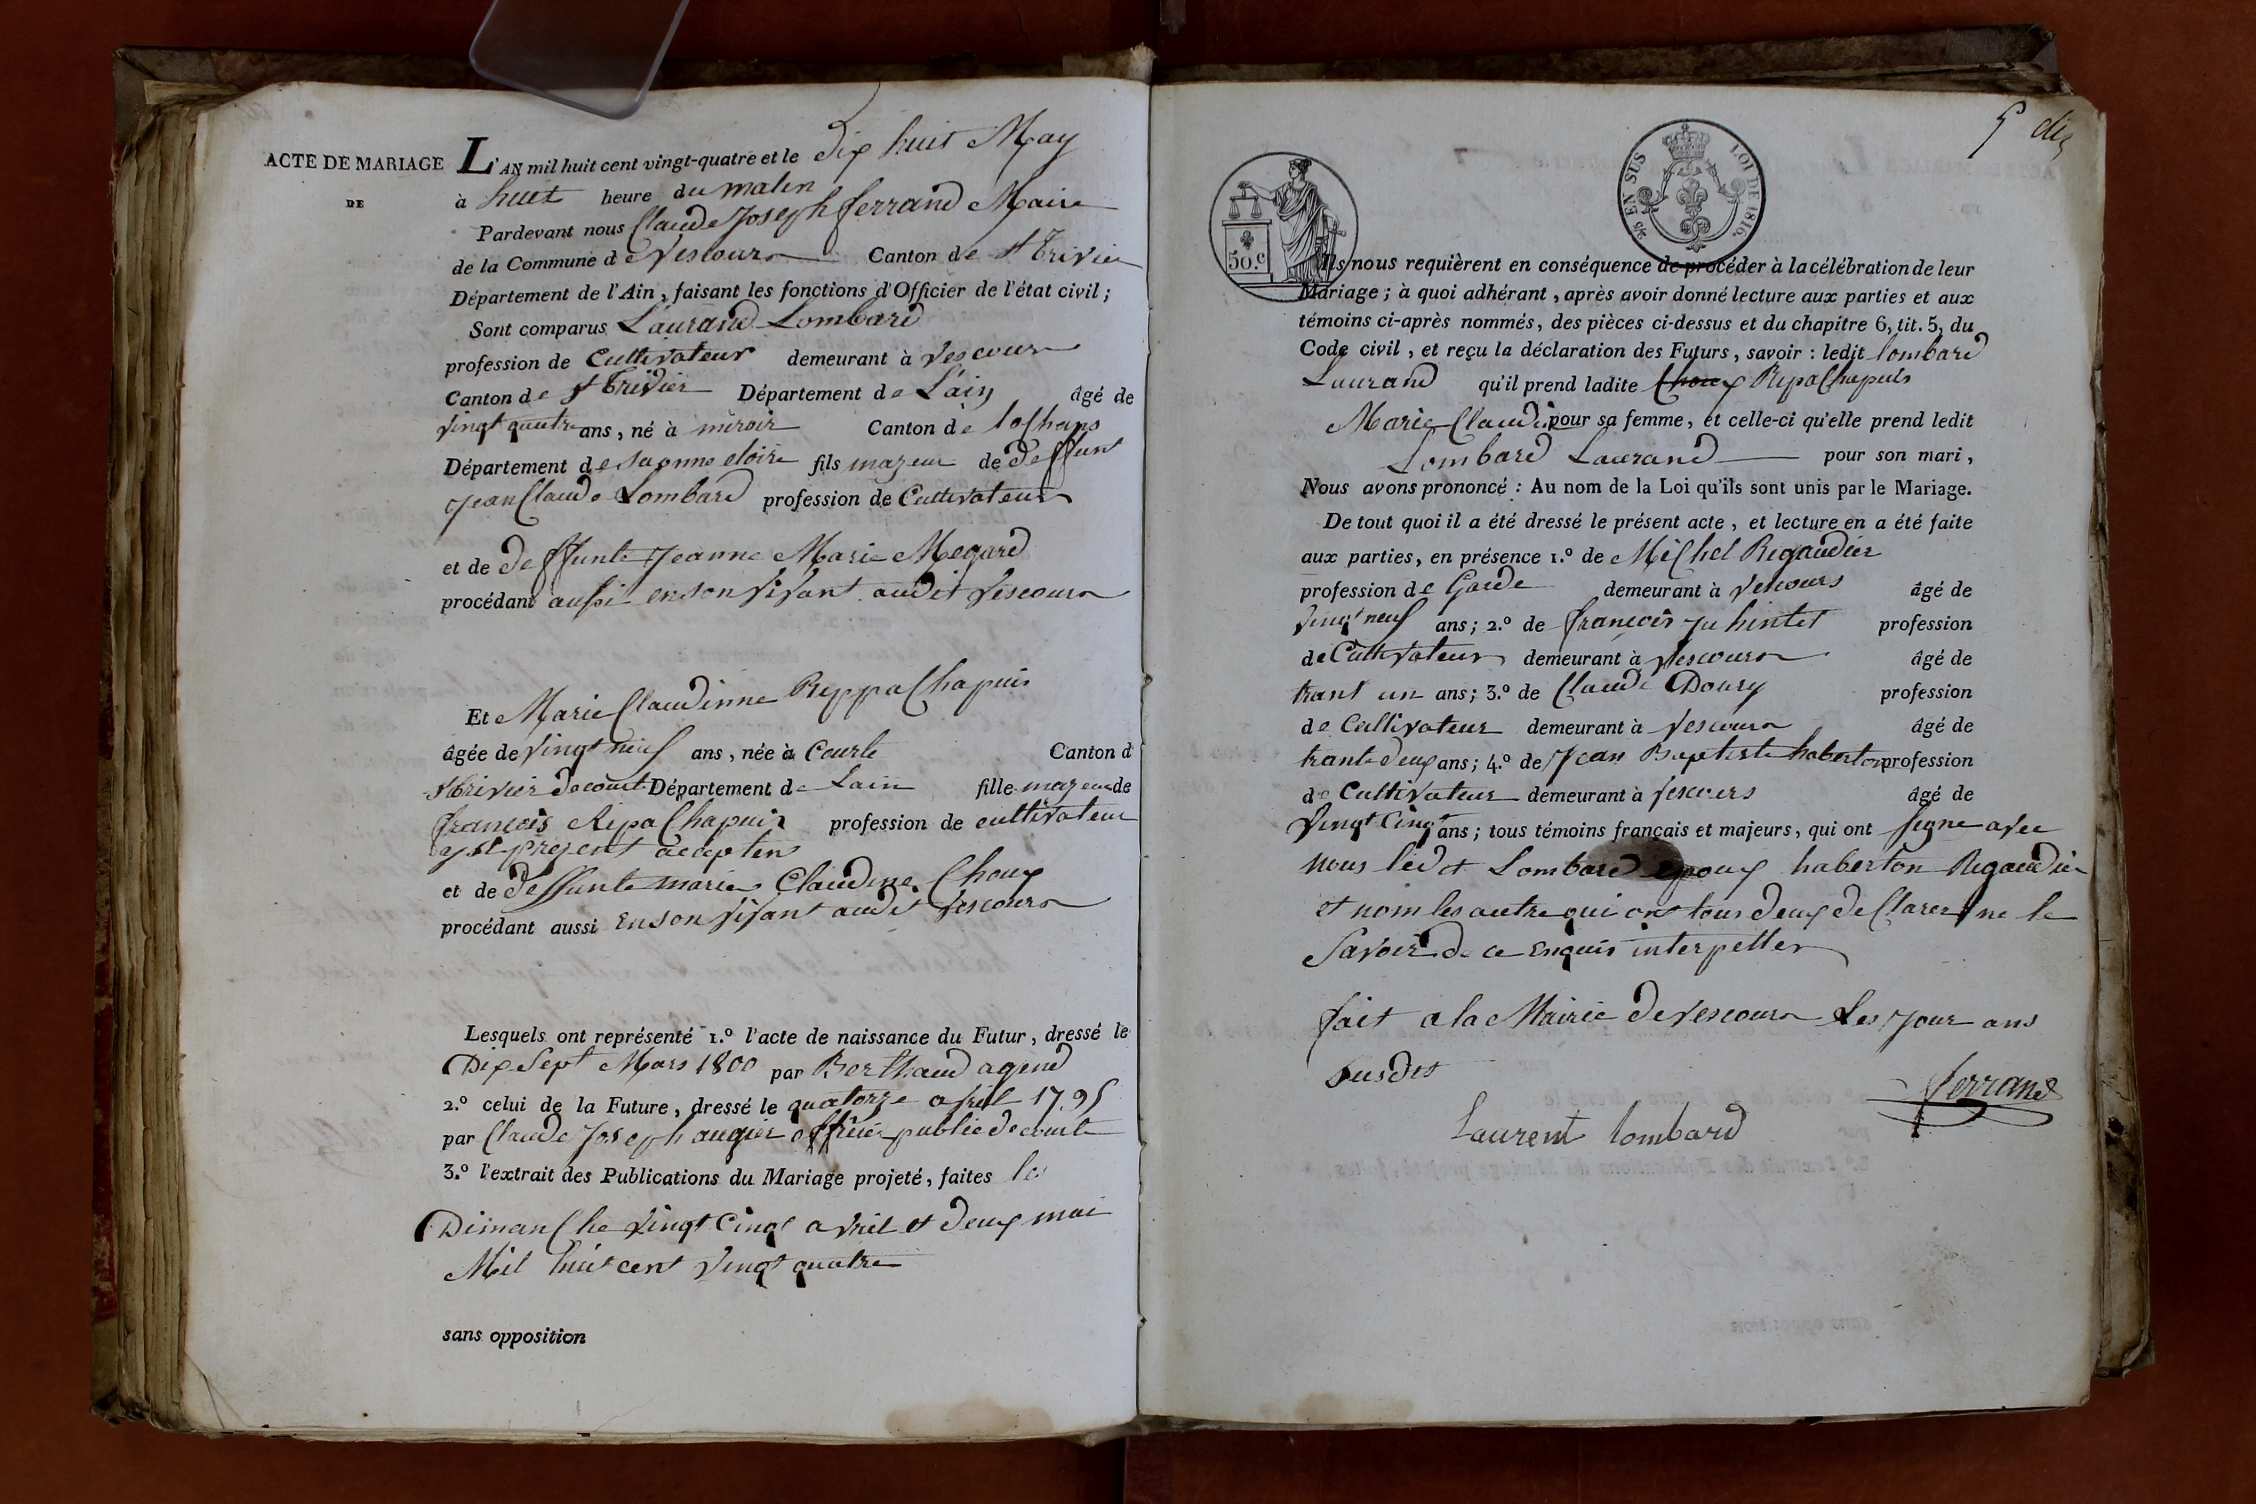 ACTE DE MARIAGE
DE
L'AN mil huit cent vingt-quatre et le dix huit May
à huit heure du matin
Pardevant nous Claude Joseph ferrand Maire
de la Commune de Vescours Canton de st trivier
Département de l'Ain, faisant les fonctions d'Officier de l'état civil;
Sont comparus Laurand Lombard
profession de Cultivateur demeurant à Vescours
Canton de st trivier Département de L'ain âgé de
vingt quatre ans, né à miroir Canton de
Département de saonne eloire fils mageur de deffunt
Jean Claude Lombard profession de Cultivateur
et de deffunte Jeanne Marie Megard
procédant aussi en son vivant audit Vescours
Et Marie Claudinne Reppa Chapuis
âgée de vingt neuf ans, née à Courte Canton d
st trivier de court Département de Lain fille mageur de
françois Ripa Chapuis profession de cultivateur
present
et de deffunte marie Claudine Choux
procédant aussi en son vivant audit Vescours
Lesquels ont représenté 1.º l'acte de naissance du Futur, dressé le
Dix Sept Mars 1800 par Berthaud agend
2.º celui de la Future, dressé le quatorze avril 1795
par Claude Joseph augier officier public de courte
3.º l'extrait des Publications du Mariage projeté, faites le
Dimanche vingt cinq avril et deux mai
Mil huit cent vingt quatre
sans opposition
5 dix
25 EN SUS
LOI DE 1816.
50.c
Ils nous requièrent en conséquence de procéder à la célébration de leur
Mariage; à quoi adhérant, après avoir donné lecture aux parties et aux
témoins ci-après nommés, des pièces ci-dessus et du chapitre 6, tit. 5, du
Code civil, et reçu la déclaration des Futurs, savoir : ledit lombard
Laurand qu'il prend ladite Choux Ripa Chapuis
Marie Claudine pour sa femme, et celle-ci qu'elle prend ledit
Lombard Laurand pour son mari,
Nous avons prononcé : Au nom de la Loi qu'ils sont unis par le Mariage.
De tout quoi il a été dressé le présent acte, et lecture en a été faite
aux parties, en présence 1.º de Michel Rigaudier
profession de Garde demeurant à Vescours âgé de
vingt neuf ans; 2.º de françois Ju hintet profession
de Cultivateur demeurant à Vescours âgé de
trant un ans; 3.º de Claude Doury profession
de Cultivateur demeurant à Vescours âgé de
trante deux ans; 4.º de Jean Baptiste haberton profession
de Cultivateur demeurant à Vescours âgé de
vingt Cinq ans; tous témoins français et majeurs, qui ont signe avec
nous led t Lombard epoux haberton Rigaudier
et nom les autre qui ont tous deux declarer ne le
savoir de ce enquis interpeller
fait a la Mairie de Vescours Les Jour ans
susdts
ferrand
Laurent lombard